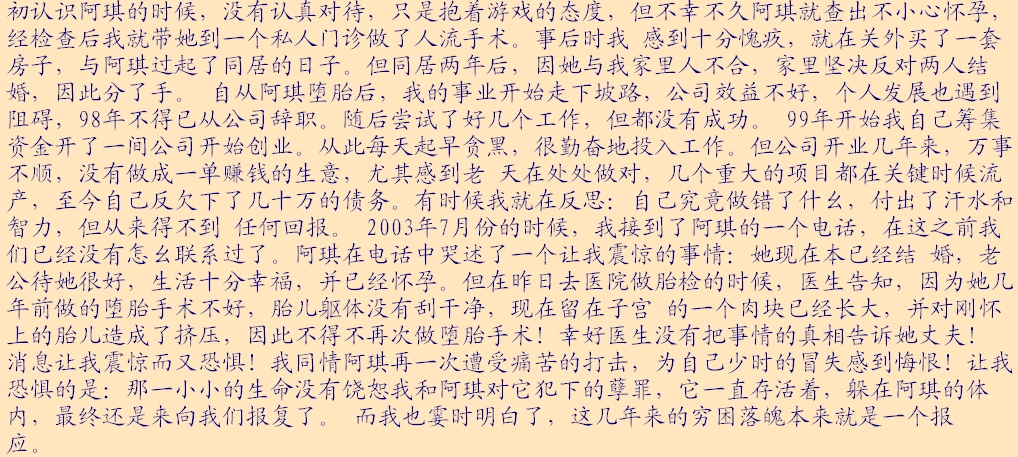 初认识阿琪的时候，没有认真对待，只是抱着游戏的态度，但不幸不久阿琪就查出不小心怀孕，
经检查后我就带她到一个私人门诊做了人流手术。事后时我 感到十分愧疚，就在关外买了一套
房子，与阿琪过起了同居的日子。但同居两年后，因她与我家里人不合，家里坚决反对两人结
婚，因此分了手。 自从阿琪堕胎后，我的事业开始走下坡路，公司效益不好，个人发展也遇到
阻碍，98年不得已从公司辞职。随后尝试了好几个工作，但都没有成功。 99年开始我自己筹集
资金开了一间公司开始创业。从此每天起早贪黑，很勤奋地投入工作。但公司开业几年来，万事
不顺，没有做成一单赚钱的生意，尤其感到老 天在处处做对，几个重大的项目都在关键时候流
产，至今自己反欠下了几十万的债务。有时候我就在反思：自己究竟做错了什么，付出了汗水和
智力，但从来得不到 任何回报。 2003年7月份的时候，我接到了阿琪的一个电话，在这之前我
们已经没有怎么联系过了。阿琪在电话中哭述了一个让我震惊的事情：她现在本已经结 婚，老
公待她很好，生活十分幸福，并已经怀孕。但在昨日去医院做胎检的时候，医生告知，因为她几
年前做的堕胎手术不好，胎儿躯体没有刮干净，现在留在子宫 的一个肉块已经长大，并对刚怀
上的胎儿造成了挤压，因此不得不再次做堕胎手术！幸好医生没有把事情的真相告诉她丈夫！
消息让我震惊而又恐惧！我同情阿琪再一次遭受痛苦的打击，为自己少时的冒失感到悔恨！让我
恐惧的是：那一小小的生命没有饶恕我和阿琪对它犯下的孽罪，它一直存活着，躲在阿琪的体
内，最终还是来向我们报复了。 而我也霎时明白了，这几年来的穷困落魄本来就是一个报
应。